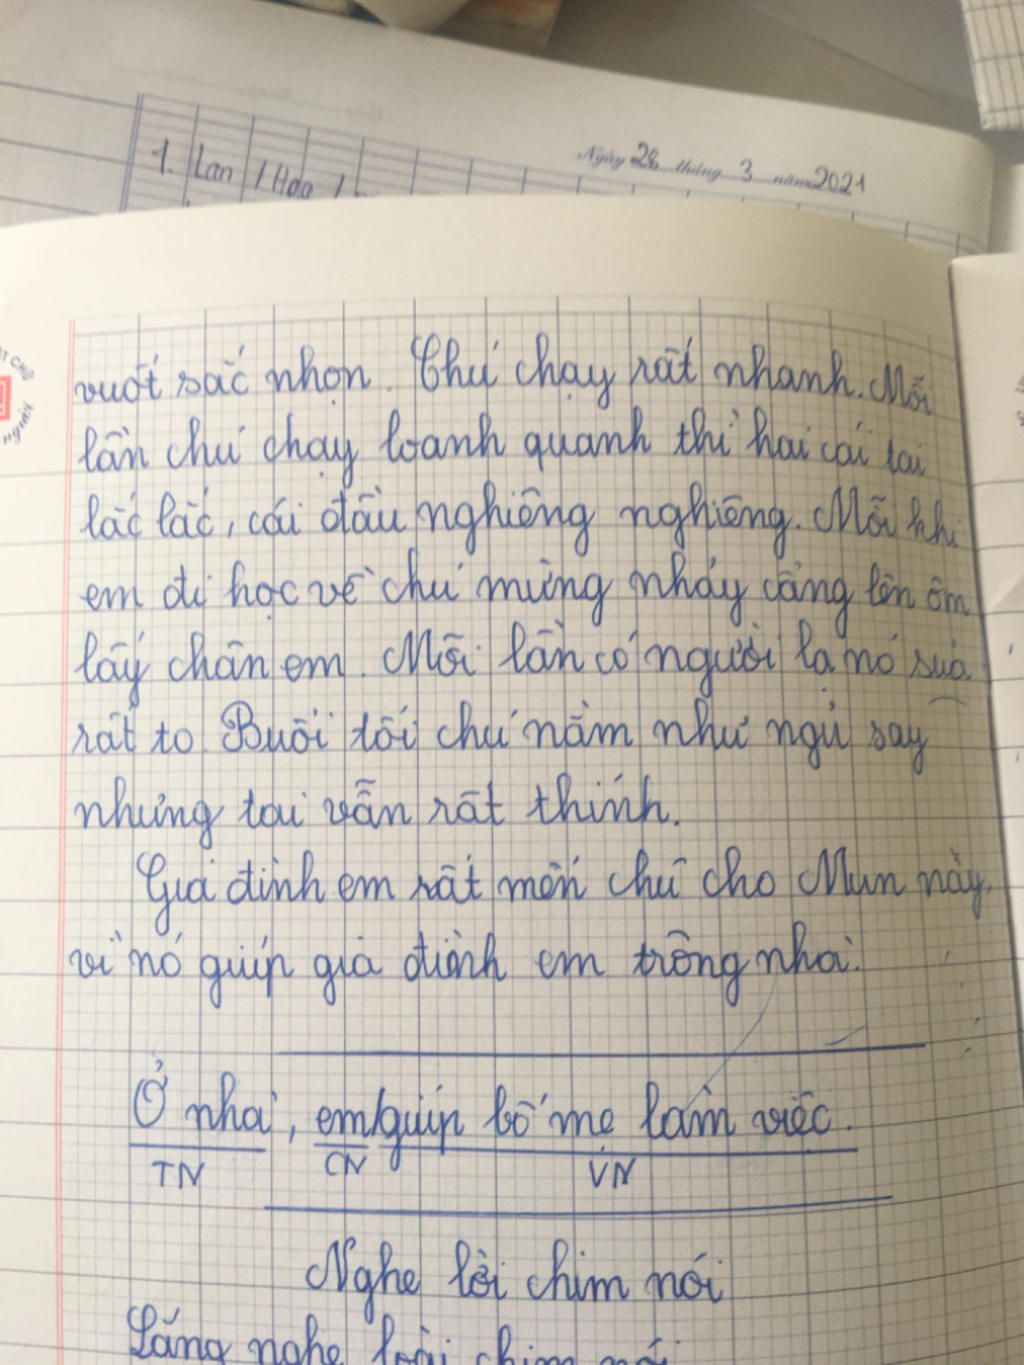 1. Lan / Hoa /
Ngày 28 tháng 3 năm 2021
vuốt sắc nhọn. Chú chạy rất nhanh. Mỗi
lần chú chạy loanh quanh thì hai cái tai
lắc lắc, cái đầu nghiêng nghiêng. Mỗi khi
em đi học về chú mừng nhảy cẫng lên ôm
lấy chân em. Mỗi lần có người lạ nó sủa
rất to. Buổi tối chú nằm như ngủ say
nhưng tai vẫn rất thính.
Gia đình em rất mến chú chó Mun này,
vì nó giúp gia đình em trông nhà.
Ở nhà, em/giúp bố mẹ làm việc.
TN CN VN
Nghe lời chim nói
Lắng nghe loài chim nói